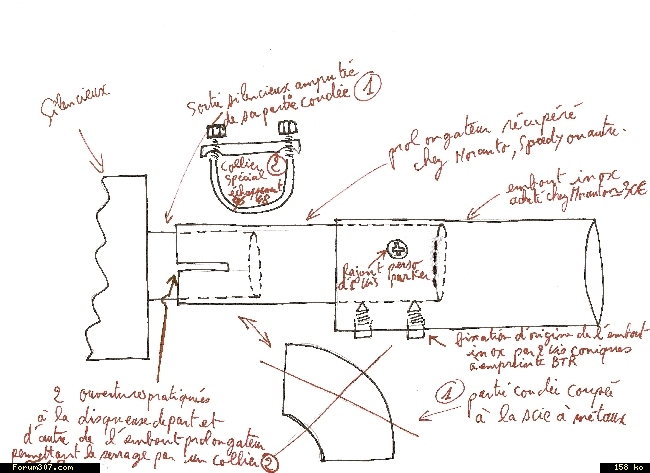 Silencieux
Sortie silencieux amputée
de sa partie coudée 1
Collier 2
spécial
échappement
prolongateur récupéré
chez Norauto, Speedy ou autre.
embout inox
acheté chez Norauto 30€
Rajout perso
d'1 vis parker
fixation d'origine de l'embout
inox par 2 vis coniques
à empreinte BTR
2 ouvertures pratiquées
à la disqueuse de part et
d'autre de l'embout prolongateur
permettant le serrage par un collier 2
1 partie coudée coupée
à la scie à métaux
Forum307.com
158 ko